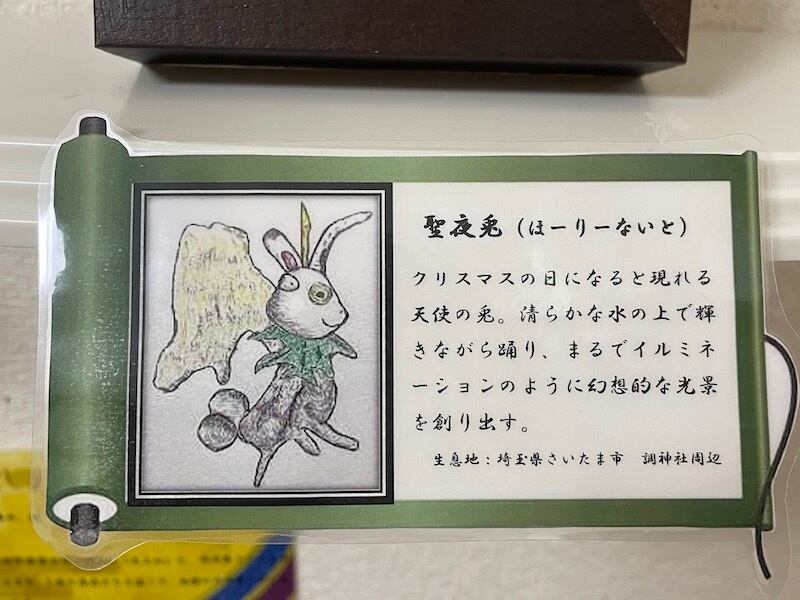 聖夜兎（ほーりーないと）
クリスマスの日になると現れる
天使の兎。清らかな水の上で輝
きながら踊り、まるでイルミネ
ーションのように幻想的な光景
を創り出す。
生息地：埼玉県さいたま市　調神社周辺